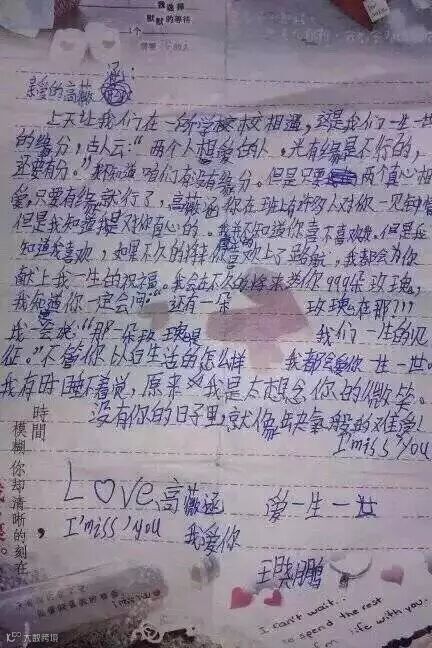 我选择
默默的等待
一个
亲爱的高薇涵:
上天让我们在一所学校校相遇,这是我们一生一世
的缘分,古人云:“两个人想爱的人,光有缘是不行的,
还要有分。”我知道咱们有没有缘分。但是只要两个真心相
爱,只要有缘就行了,高薇涵你在班上有许多人对你一见钟情
但是我知道我是对你真心的。我并不知道你喜不喜欢我。但是我
知道我喜欢,如果不久的将来你喜欢上了别人,我都会为你
献上我一生的祝福。我会在不久的将来送你999朵玫瑰,
我知道你一定会问:“还有一朵玫瑰在那???
我会说“那一朵玫瑰是我们一生的见
证。”不管你以后生活的怎么样 我都会爱你一生一世。
我有时睡不着觉,原来我是太想念你的微笑。
没有你的日子里,就像缺氧般的难受!
I'miss you
Love 高薇涵 爱一生一世
I'miss you 我爱你
王晓鹏
時間
模糊你却清晰的刻在
I miss you
I can't wait...
to spend the rest
of my life with you..
大数跨境